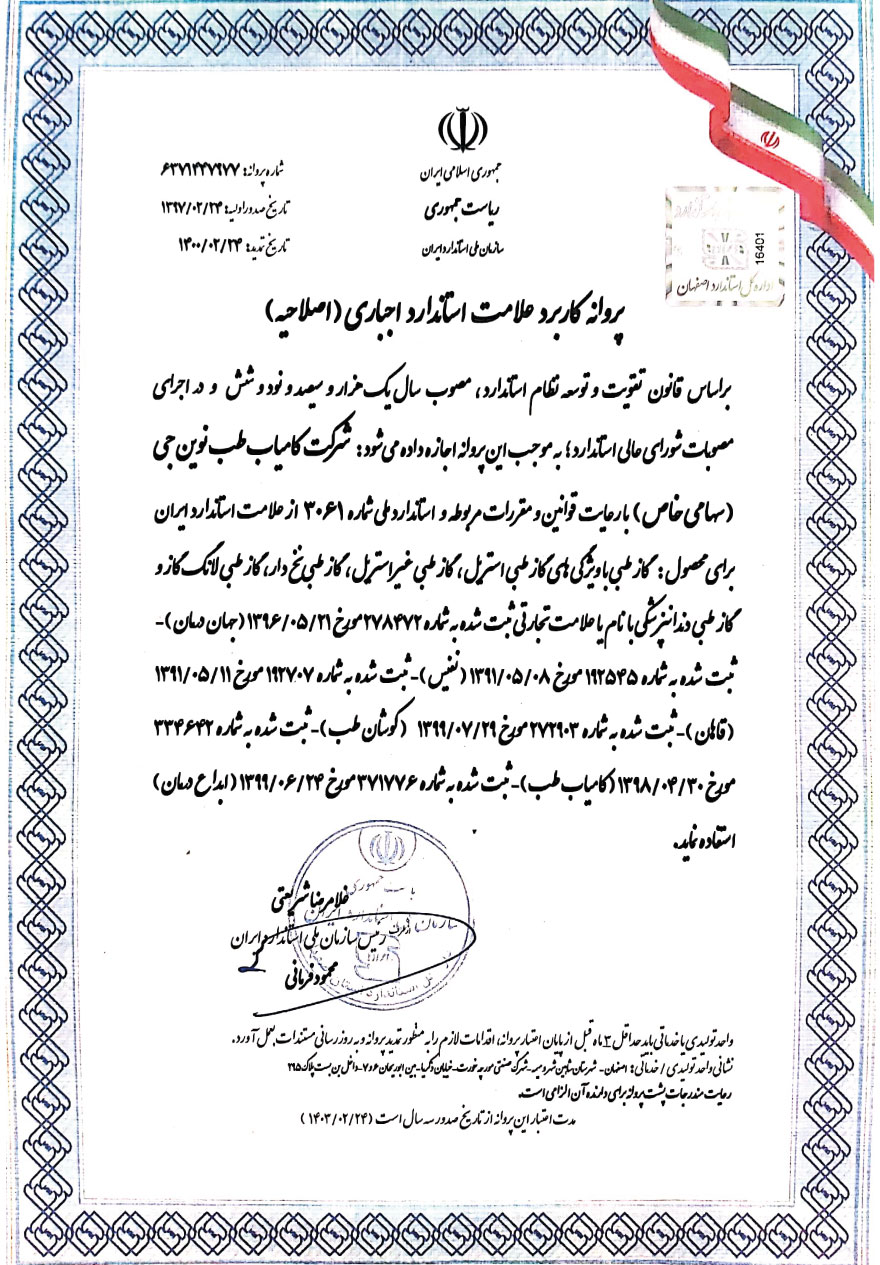 جمهوری اسلامی ایران
ریاست جمهوری
سازمان ملی استاندارد ایران
شماره پروانه: ۶۳۷۱۴۴۷۹۷۷
تاریخ صدور اولیه: ۱۳۹۷/۰۲/۲۴
تاریخ تمدید: ۱۴۰۰/۰۲/۲۴
16401
اداره کل استاندارد اصفهان
پروانه کاربرد علامت استاندارد اجباری (اصلاحیه)
براساس قانون تقویت و توسعه نظام استاندارد، مصوب سال یک هزار و سیصد و نود و شش و در اجرای
مصوبات شورای عالی استاندارد؛ به موجب این پروانه اجازه داده می شود: شرکت کامیاب طب نوین جی
(سهامی خاص) با رعایت قوانین و مقررات مربوطه و استاندارد ملی شماره ۳۰۶۱ از علامت استاندارد ایران
برای محصول: گاز طبی با ویژگی های گاز طبی استریل، گاز طبی غیر استریل، گاز طبی نخ دار، گاز طبی لانگ گاز و
گاز طبی دندانپزشکی با نام یا علامت تجارتی ثبت شده به شماره ۲۷۸۴۷۲ مورخ ۱۳۹۶/۰۵/۲۱ (جهان درمان)-
ثبت شده به شماره ۱۹۲۵۴۵ مورخ ۱۳۹۱/۰۵/۰۸ (نفیس)-ثبت شده به شماره ۱۹۲۷۰۷ مورخ ۱۳۹۱/۰۵/۱۱
(قاهان)-ثبت شده به شماره ۲۷۲۹۰۳ مورخ ۱۳۹۹/۰۷/۲۹ (کوشان طب)-ثبت شده به شماره ۳۳۴۶۴۲
مورخ ۱۳۹۸/۰۴/۳۰ (کامیاب طب)-ثبت شده به شماره ۳۷۱۷۷۶ مورخ ۱۳۹۹/۰۶/۲۴ (ابداع درمان)
استفاده نماید.
غلامرضا شریعتی
رئیس سازمان ملی استاندارد ایران
محمود فرمانی
واحد تولیدی یا خدماتی باید حداقل ۳ ماه قبل از پایان اعتبار پروانه، اقدامات لازم را به منظور تمدید پروانه و به روز رسانی مستندات بعمل آورد.
نشانی واحد تولیدی / خدماتی: اصفهان- شهرستان شاهین شهر و میمه- شرکت صنعتی مورچه خورت- خیابان زکریا- بین ابوریحان ۶ و ۷-داخل بن بست پلاک ۲۹۵
رعایت مندرجات پشت پروانه برای دارنده آن الزامی است.
مدت اعتبار این پروانه از تاریخ صدور سه سال است (۱۴۰۳/۰۲/۲۴)